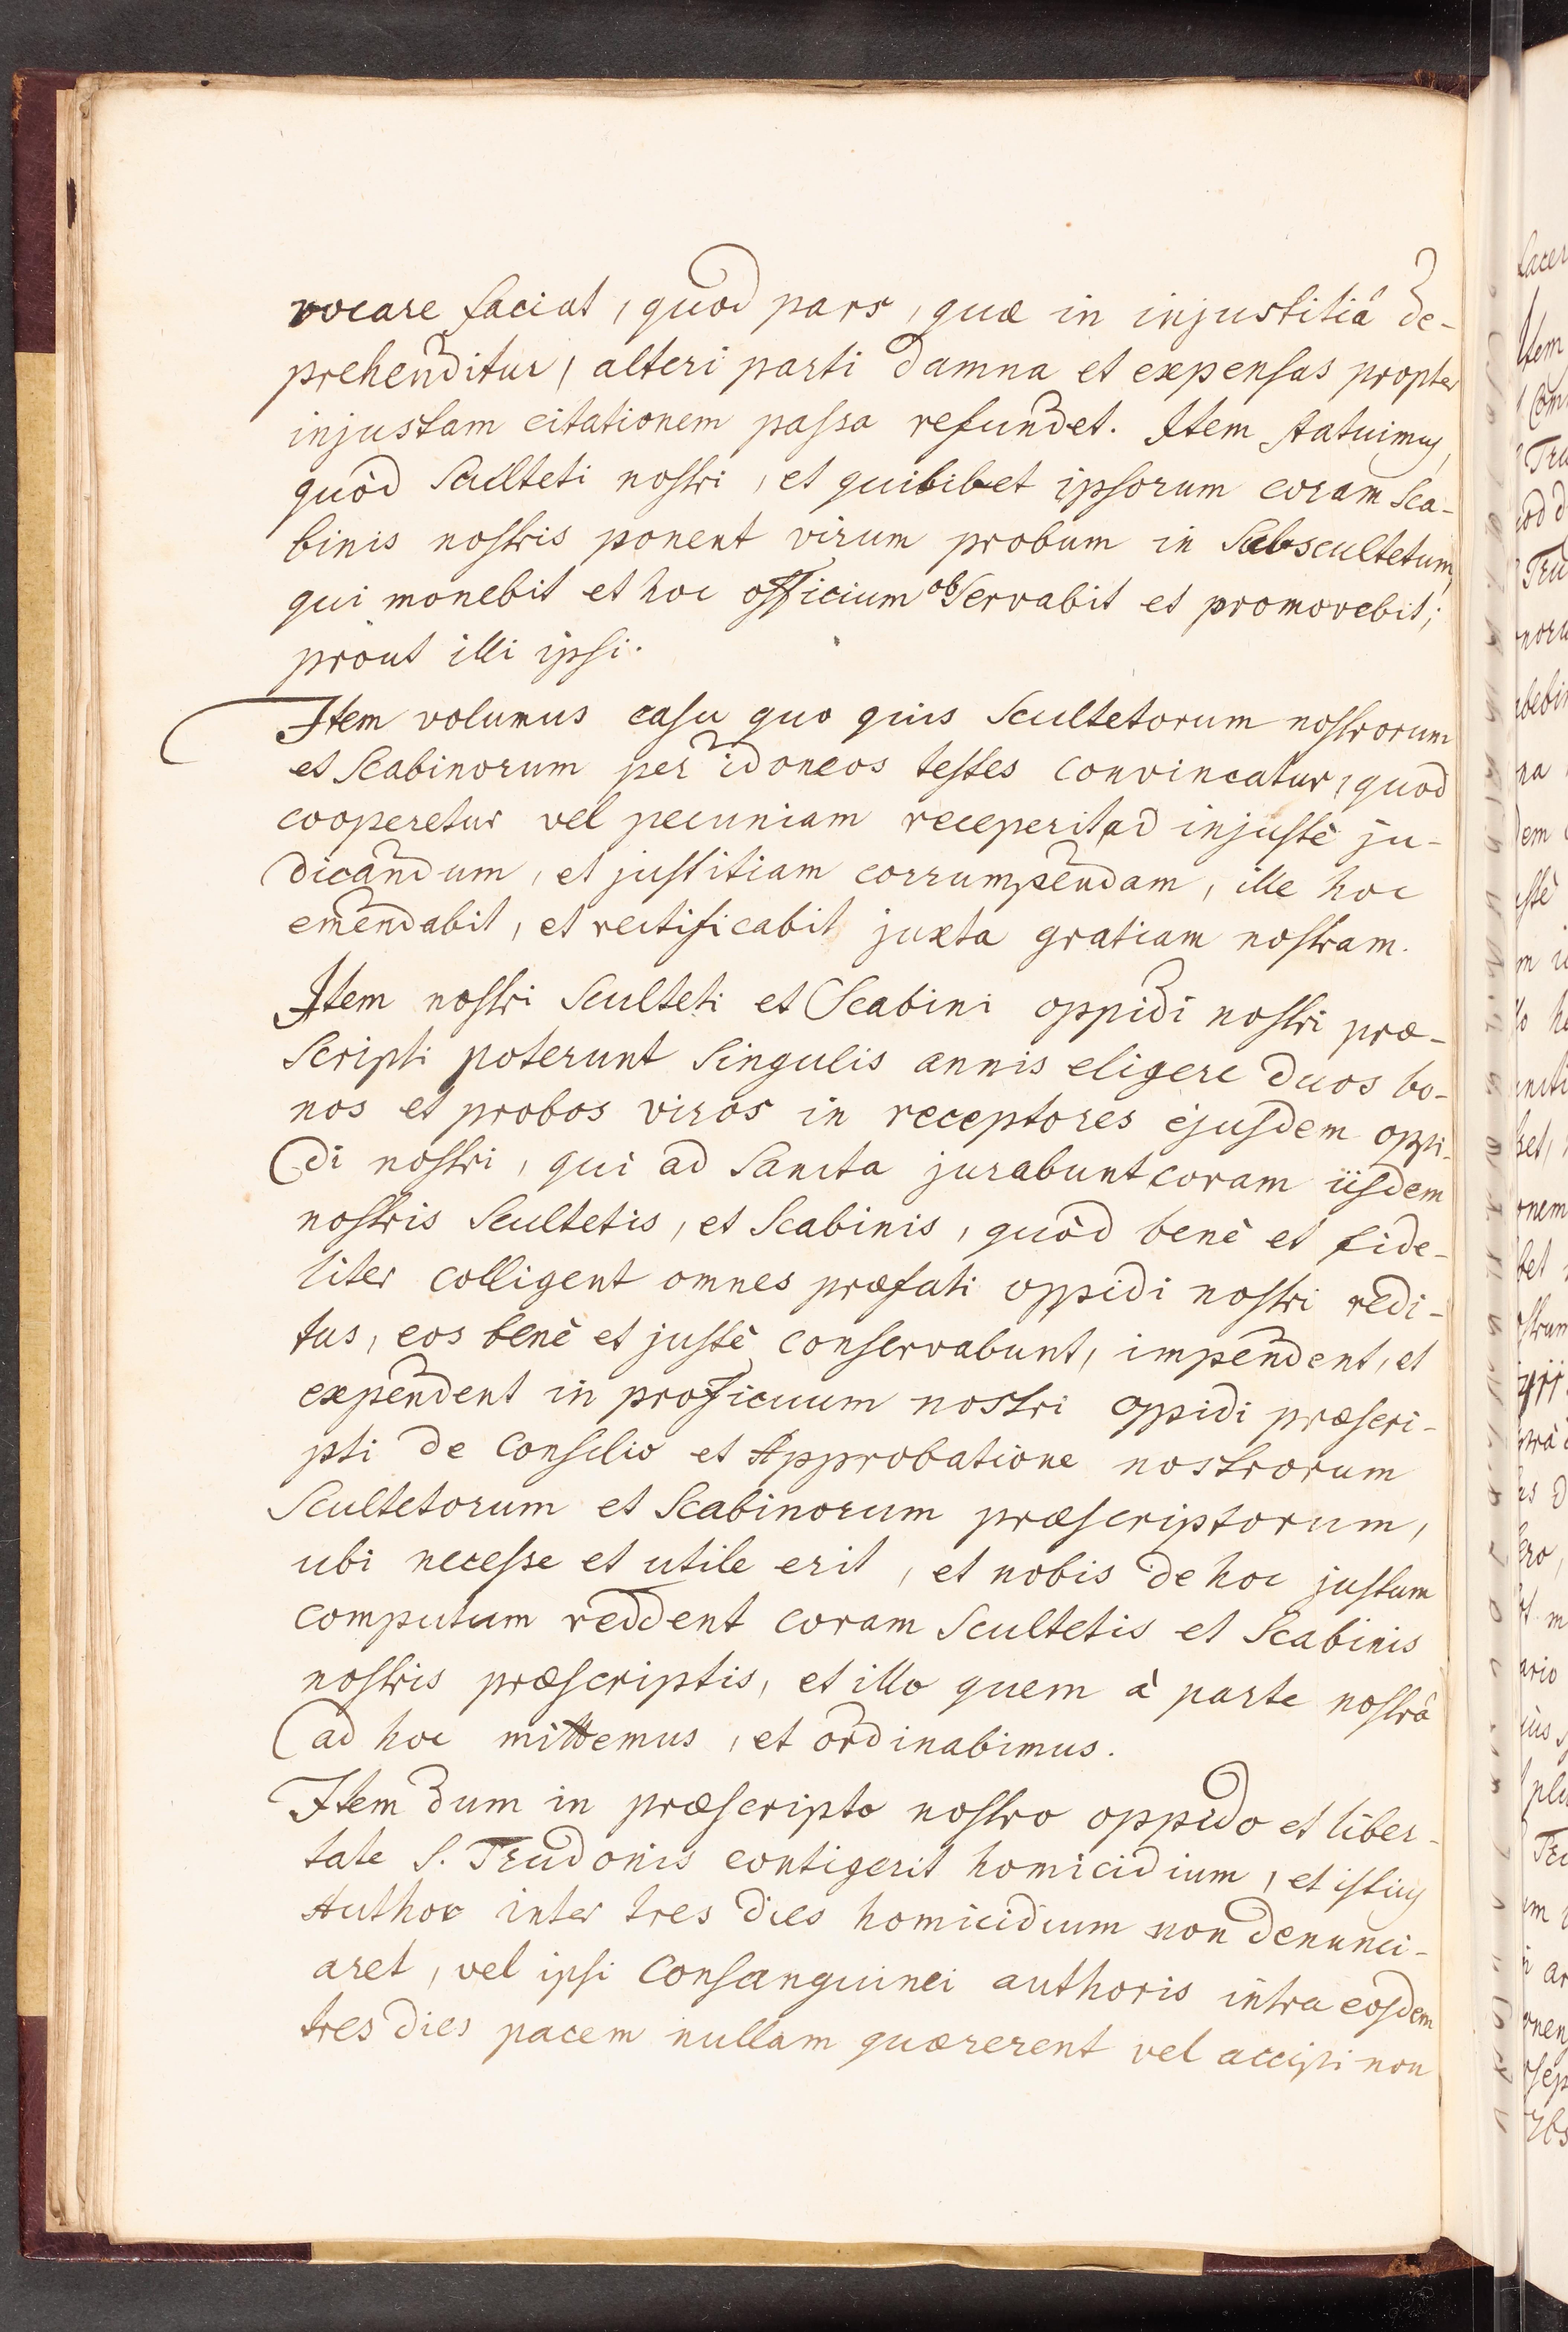 vocare faciat, quod pars, quæ in injustitiâ de-
prehenditur, alteri parti damna et expensas propter
injustam citationem passa refundet. Item statuimus,
quòd Sculteti nostri, et quibibet ipsorum coram Sca-
binis nostris ponent virum probum in Subscultetum,
qui monebit et hoc officium observabit et promovebit;
prout illi ipsi.
Item volumus casu quo quis Scultetorum nostrorum
et Scabinorum per idoneos testes convincatur, quod
cooperetur vel pecuniam receperit ad injustè ju-
dicandum, et justitiam corrumpendam, ille hoc
emendabit, et rectificabit juxta gratiam nostram.
Item nostri Sculteti et Scabini oppidi nostri præ-
scripti poterunt singulis annis eligere duos bo-
nos et probos viros in receptores ejusdem oppi-
di nostri, qui ad Sancta jurabunt coram iisdem
nostris Scultetis, et Scabinis, quòd benè et fide-
liter colligent omnes præfati oppidi nostri redi-
tus, eos benè et justè conservabunt, impendent, et
expendent in proficuum nostri oppidi præscri-
pti de Consilio et Approbatione nostrorum
Scultetorum et Scabinorum præscriptorum,
ubi necesse et utile erit, et nobis de hoc justum
computum reddent coram Scultetis et Scabinis
nostris præscriptis, et illo quem à parte nostrâ
ad hoc mittemus, et ordinabimus.
Item dum in præscripto nostro oppido et liber-
tate S. Trudonis contigerit homicidium, et istius
Author inter tres dies homicidium non denunci-
aret, vel ipsi Consanguinei authoris intra eosdem
tres dies pacem nullam quærerent vel accipi non